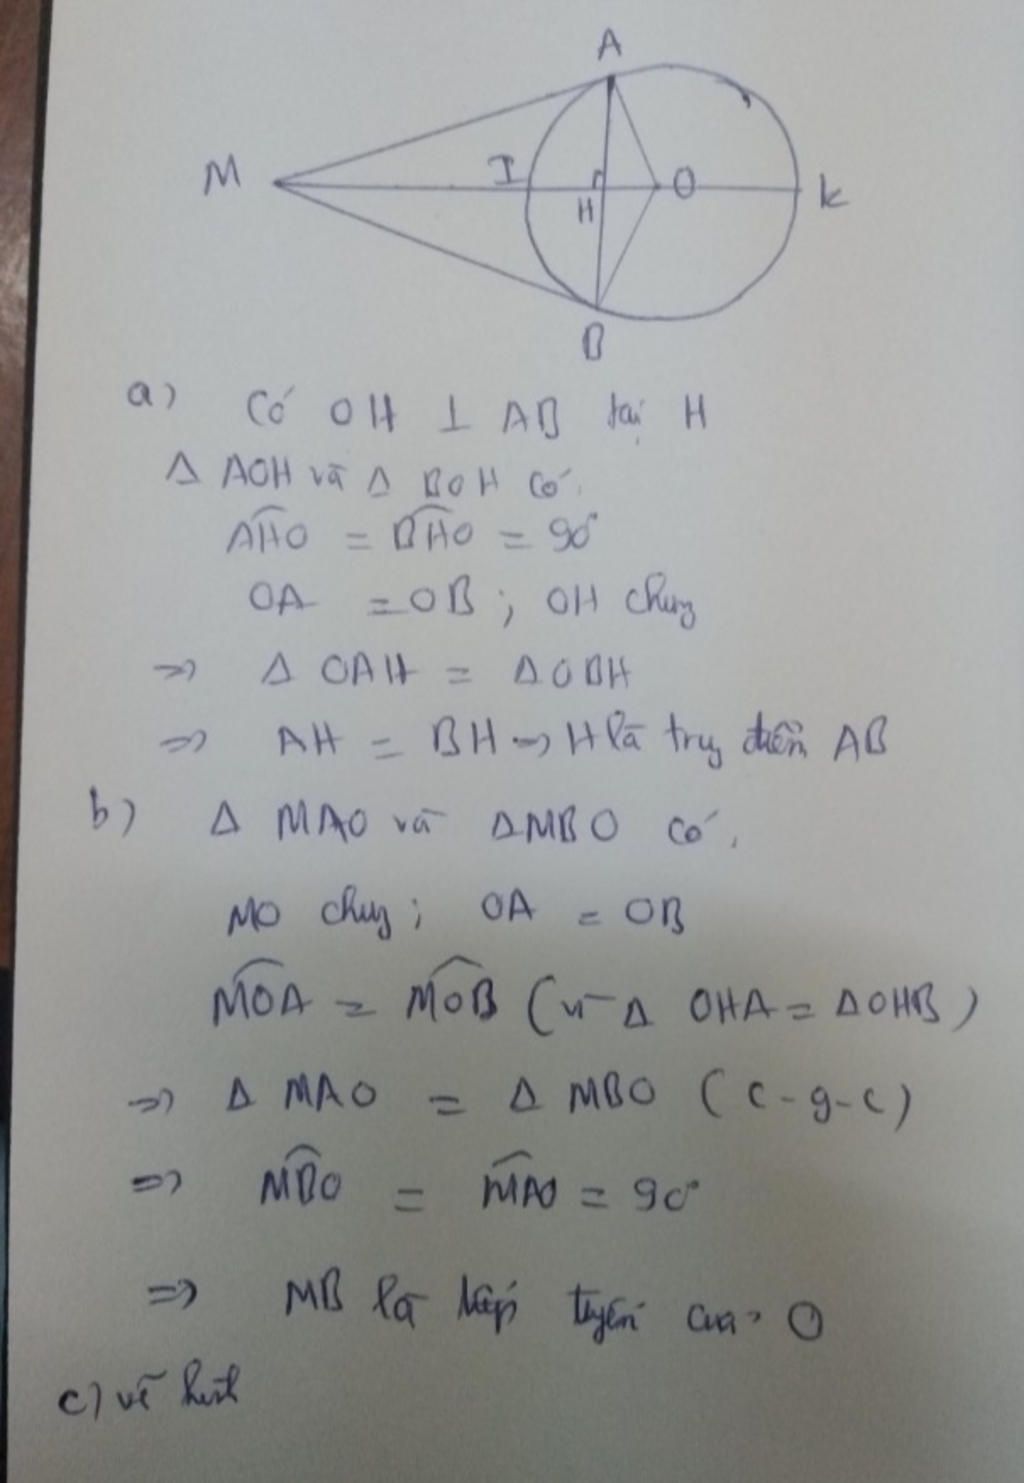 A
M I H O k
B
a) Có OH ⊥ AB tại H
Δ AOH và Δ BOH có.
AHO = BHO = 90°
OA = OB ; OH chung
=> Δ OAH = Δ OBH
=> AH = BH => H là trung điểm AB
b) Δ MAO và ΔMBO có.
MO chung ; OA = OB
MOA = MOB (vì Δ OHA = ΔOHB)
=> Δ MAO = Δ MBO (c-g-c)
=> MBO = MAO = 90°
=> MB là tiếp tuyến của O
c) vẽ hình